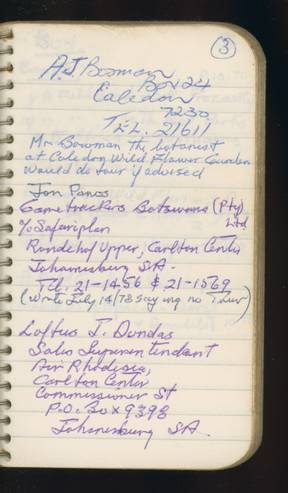 3
A.J. Bosman
Box 24
Caledon
7230
TEL. 21611
Mr. Bowman the botanist
at Caledon Wild Flower Garden
would do tour if advised
Jon Panos
Gametrackers Botswana (Pty)
Ltd
% Safariplan
Rondehof Upper, Carlton Centre
Johannesburg S.A.
Tel. 21-1456 & 21-1569
(Wrote July 14/78 saying no
Loftus J. Dundas
Sales Superintendant
Air Rhodesia,
Carlton Center
Commissioner St
P.O. Box 9398
Johanesburg SA.